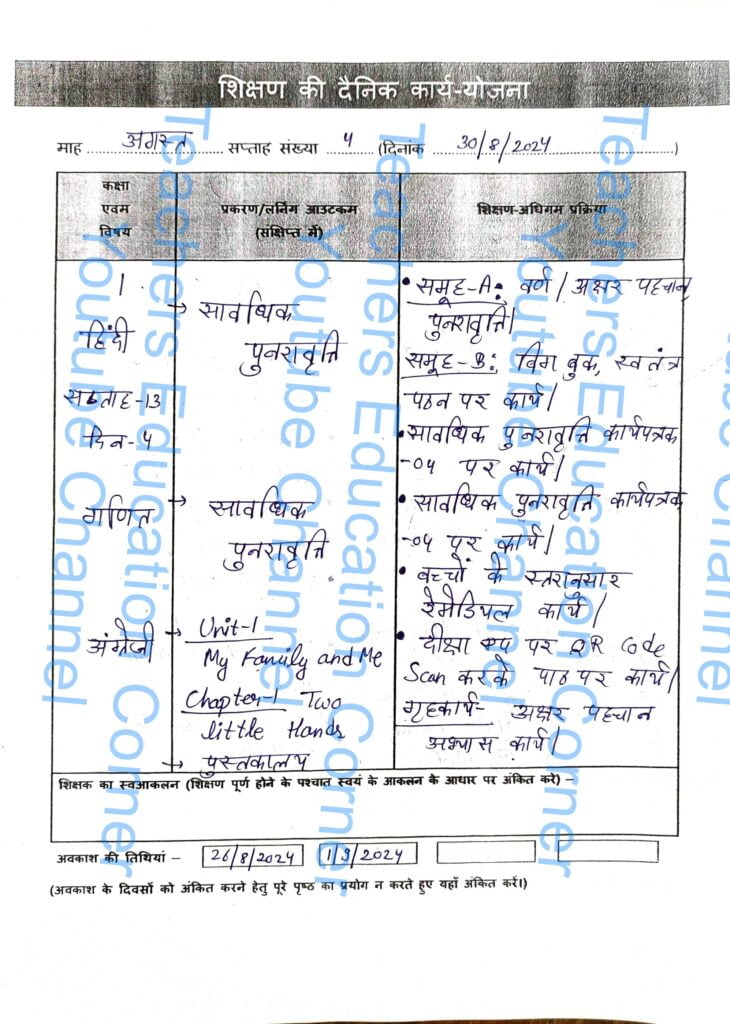 शिक्षण की दैनिक कार्य-योजना
माह अगस्त सप्ताह संख्या 4 (दिनांक 30/8/2024)
कक्षा एवम विषय
प्रकरण/लर्निंग आउटकम (संक्षिप्त में)
शिक्षण-अधिगम प्रक्रिया
1
हिंदी
सप्ताह-13
दिन-4
→ सावधिक
पुनरावृत्ति
• समूह-A: वर्ण/अक्षर पहचान
पुनरावृत्ति।
समूह-B: बिग बुक, स्वतंत्र
पठन पर कार्य।
• सावधिक पुनरावृत्ति कार्यपत्रक
-04 पर कार्य।
गणित
→ सावधिक
पुनरावृत्ति
• सावधिक पुनरावृत्ति कार्यपत्रक
-04 पर कार्य।
• बच्चों के स्तरानुसार
रेमेडियल कार्य।
अंग्रेजी
→ Unit-1
My Family and Me
Chapter-1 Two
little Hands
→ पुस्तकालय
• दीक्षा एप पर QR Code
Scan करके पाठ पर कार्य।
गृहकार्य- अक्षर पहचान
अभ्यास कार्य।
शिक्षक का स्वआकलन (शिक्षण पूर्ण होने के पश्चात स्वयं के आकलन के आधार पर अंकित करे) –
अवकाश की तिथियां – 26/8/2024 1/9/2024
(अवकाश के दिवसों को अंकित करने हेतु पूरे पृष्ठ का प्रयोग न करते हुए यहाँ अंकित करें।)
Teachers Education Corner
Youtube Channel
Teachers Education Corner
Youtube Channel
Teachers Education Corner
Youtube Channel